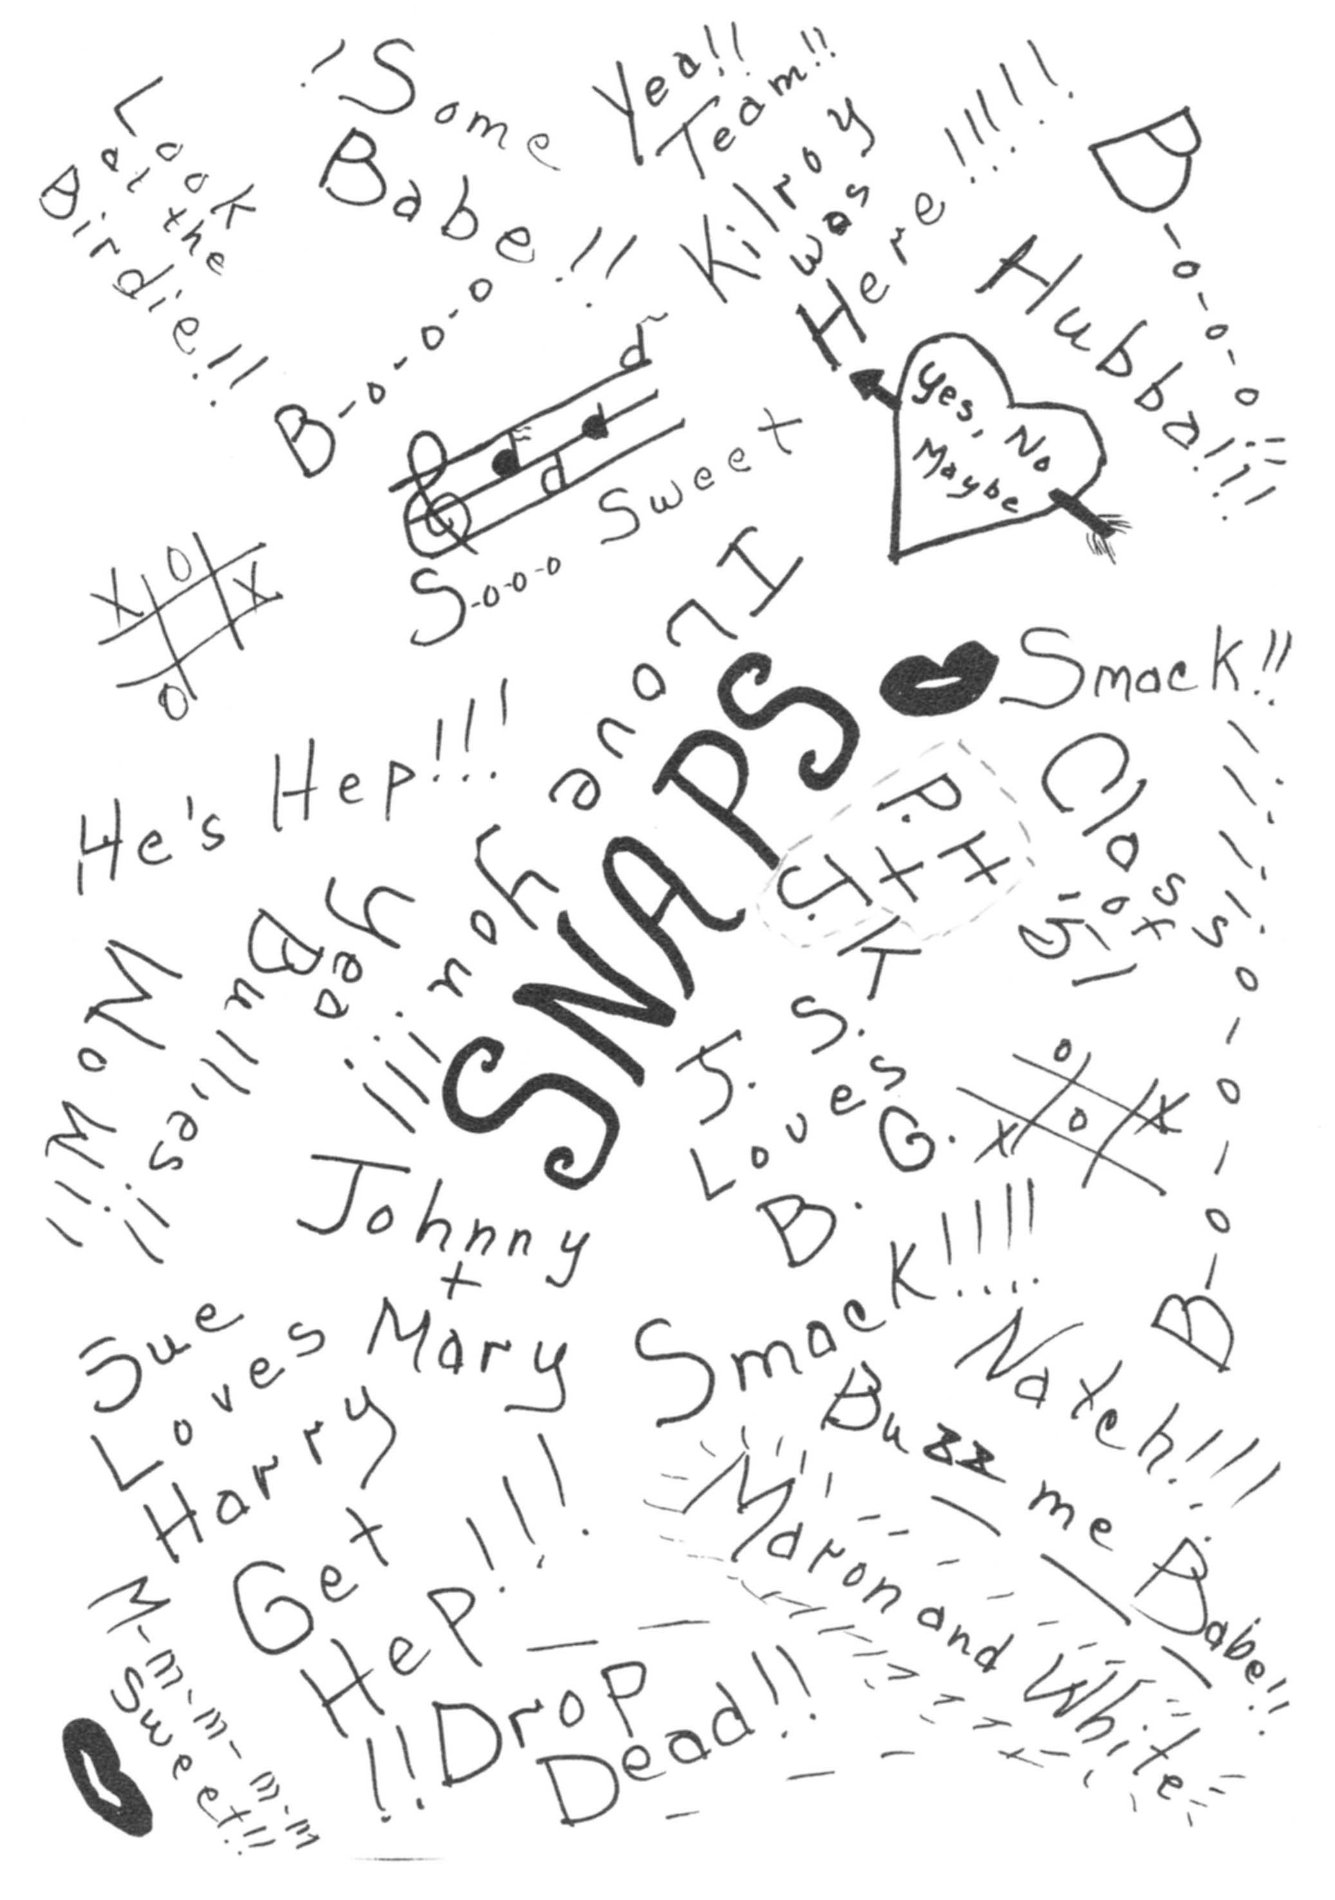 Look
at the
Birdie!!
! Some
Babe!!
Yea!!
Team!!
Kilroy
was
Here!!!!!
B-o-o-o
B-o-o-o-o
Hubba!!!
Yes, No
Maybe
S-o-o-o Sweet
X O X
O
I Love you!!!
SNAPS
Smack!!
He's Hep!!!
P. H
+
J. K T
Class!!!!
of
'51
Yea
Bull,es!!
MoM!!
J. S.
Loves
B. G.
O
O
X X
B-o-o-o
Johnny
+
Mary
Sue
Loves
Harry
Smack!!!!
Natch!!!
Buzz me Babe!!
Get
Hep!!!
Maron and White
M-m-m-m-m
Sweet!!
!!Drop
Dead!!